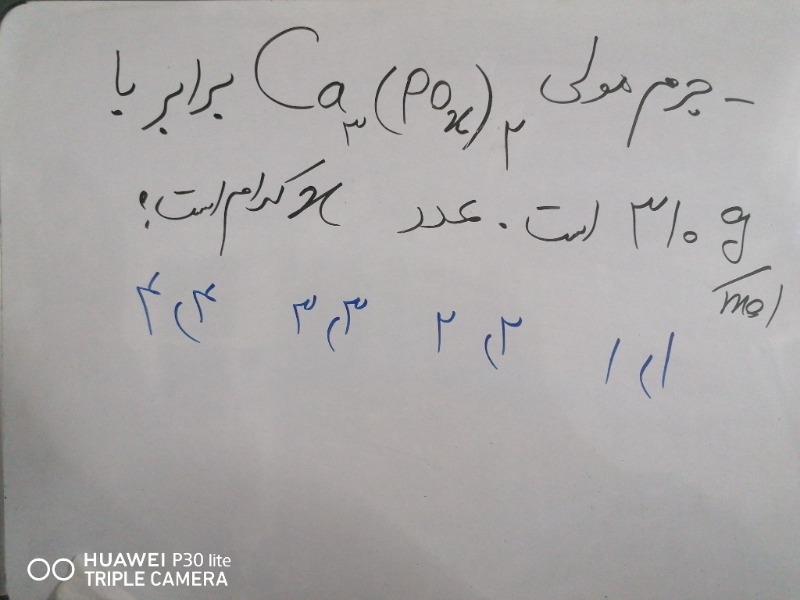 - جرم مولی Ca۳(POx)۲ برابر با
۳۱۰ g/mol است. عدد x کدام است؟
۱) ۱ ۲) ۲ ۳) ۳ ۴) ۴
HUAWEI P30 lite
TRIPLE CAMERA